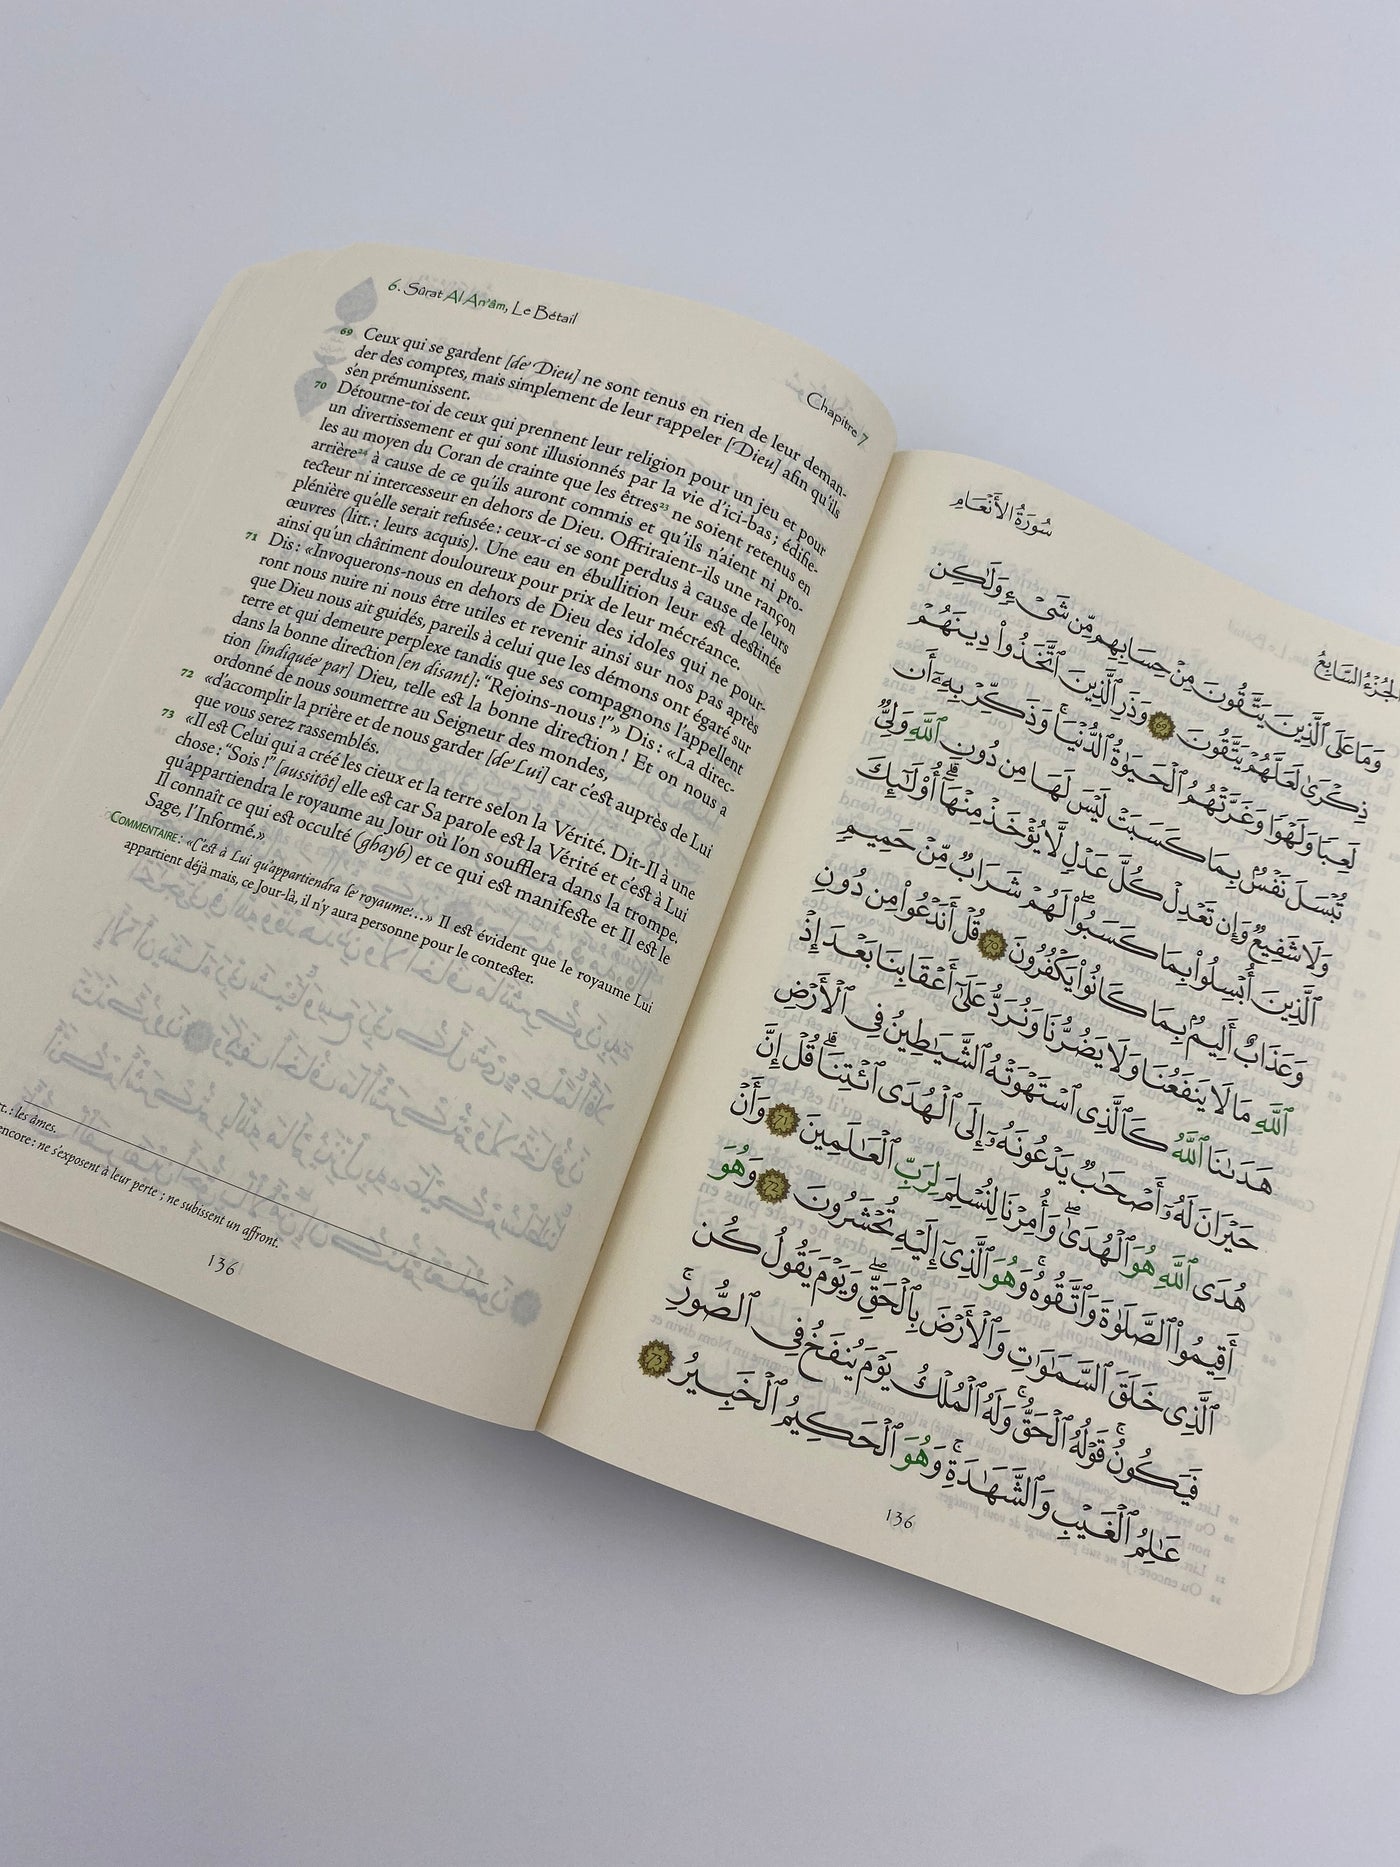 6. Sûrat Al An'âm, Le Bétail
Chapitre 7
69 Ceux qui se gardent [de Dieu] ne sont tenus en rien de leur deman-
der des comptes, mais simplement de leur rappeler [Dieu] afin qu'ils
s'en prémunissent.
70 Détourne-toi de ceux qui prennent leur religion pour un jeu et pour
un divertissement et qui sont illusionnés par la vie d'ici-bas ; édifie-
les au moyen du Coran de crainte que les êtres23 ne soient retenus en
arrière24 à cause de ce qu'ils auront commis et qu'ils n'aient ni pro-
tecteur ni intercesseur en dehors de Dieu. Offriraient-ils une rançon
plénière qu'elle serait refusée : ceux-ci se sont perdus à cause de leurs
œuvres (litt. : leurs acquis). Une eau en ébullition leur est destinée
ainsi qu'un châtiment douloureux pour prix de leur mécréance.
71 Dis : «Invoquerons-nous en dehors de Dieu des idoles qui ne pour-
ront nous nuire ni nous être utiles et revenir ainsi sur nos pas après
que Dieu nous ait guidés, pareils à celui que les démons ont égaré sur
terre et qui demeure perplexe tandis que ses compagnons l'appellent
dans la bonne direction [en disant] : “Rejoins-nous !”» Dis : «La direc-
tion [indiquée par] Dieu, telle est la bonne direction ! Et on nous a
ordonné de nous soumettre au Seigneur des mondes,
72 «d'accomplir la prière et de nous garder [de Lui] car c'est auprès de Lui
que vous serez rassemblés.
73 «Il est Celui qui a créé les cieux et la terre selon la Vérité. Dit-Il à une
chose : “Sois !” [aussitôt] elle est car Sa parole est la Vérité et c'est à Lui
qu'appartiendra le royaume au Jour où l'on soufflera dans la trompe.
Il connaît ce qui est occulté (ghayb) et ce qui est manifeste et Il est le
Sage, l'Informé.»
COMMENTAIRE : «C'est à Lui qu'appartiendra le royaume...» Il est évident que le royaume Lui
appartient déjà mais, ce Jour-là, il n'y aura personne pour le contester.
: les âmes.
encore : ne s'exposent à leur perte ; ne subissent un affront.
136
سُورَةُ الأَنْعَامِ
الجُزْءُ السَّابِعُ
وَمَا عَلَى ٱلَّذِينَ يَتَّقُونَ مِنْ حِسَابِهِم مِّن شَىْءٍ وَلَٰكِن
ذِكْرَىٰ لَعَلَّهُمْ يَتَّقُونَ ٦٩ وَذَرِ ٱلَّذِينَ ٱتَّخَذُوا۟ دِينَهُمْ
لَعِبًا وَلَهْوًا وَغَرَّتْهُمُ ٱلْحَيَوٰةُ ٱلدُّنْيَا ۚ وَذَكِّرْ بِهِۦٓ أَن
تُبْسَلَ نَفْسٌۢ بِمَا كَسَبَتْ لَيْسَ لَهَا مِن دُونِ ٱللَّهِ وَلِىٌّ
وَلَا شَفِيعٌ وَإِن تَعْدِلْ كُلَّ عَدْلٍ لَّا يُؤْخَذْ مِنْهَآ ۗ أُو۟لَٰٓئِكَ
ٱلَّذِينَ أُبْسِلُوا۟ بِمَا كَسَبُوا۟ ۖ لَهُمْ شَرَابٌ مِّنْ حَمِيمٍ
وَعَذَابٌ أَلِيمٌۢ بِمَا كَانُوا۟ يَكْفُرُونَ ٧٠ قُلْ أَنَدْعُوا۟ مِن دُونِ
ٱللَّهِ مَا لَا يَنفَعُنَا وَلَا يَضُرُّنَا وَنُرَدُّ عَلَىٰٓ أَعْقَابِنَا بَعْدَ إِذْ
هَدَىٰنَا ٱللَّهُ كَٱلَّذِى ٱسْتَهْوَتْهُ ٱلشَّيَٰطِينُ فِى ٱلْأَرْضِ
حَيْرَانَ لَهُۥٓ أَصْحَٰبٌ يَدْعُونَهُۥٓ إِلَى ٱلْهُدَى ٱئْتِنَا ۗ قُلْ إِنَّ
هُدَى ٱللَّهِ هُوَ ٱلْهُدَىٰ ۖ وَأُمِرْنَا لِنُسْلِمَ لِرَبِّ ٱلْعَٰلَمِينَ ٧١ وَأَنْ
أَقِيمُوا۟ ٱلصَّلَوٰةَ وَٱتَّقُوهُ ۚ وَهُوَ ٱلَّذِىٓ إِلَيْهِ تُحْشَرُونَ ٧٢ وَهُوَ
ٱلَّذِى خَلَقَ ٱلسَّمَٰوَٰتِ وَٱلْأَرْضَ بِٱلْحَقِّ ۖ وَيَوْمَ يَقُولُ كُن
فَيَكُونُ ۚ قَوْلُهُ ٱلْحَقُّ ۚ وَلَهُ ٱلْمُلْكُ يَوْمَ يُنفَخُ فِى ٱلصُّورِ ۚ
عَٰلِمُ ٱلْغَيْبِ وَٱلشَّهَٰدَةِ ۚ وَهُوَ ٱلْحَكِيمُ ٱلْخَبِيرُ ٧٣
136